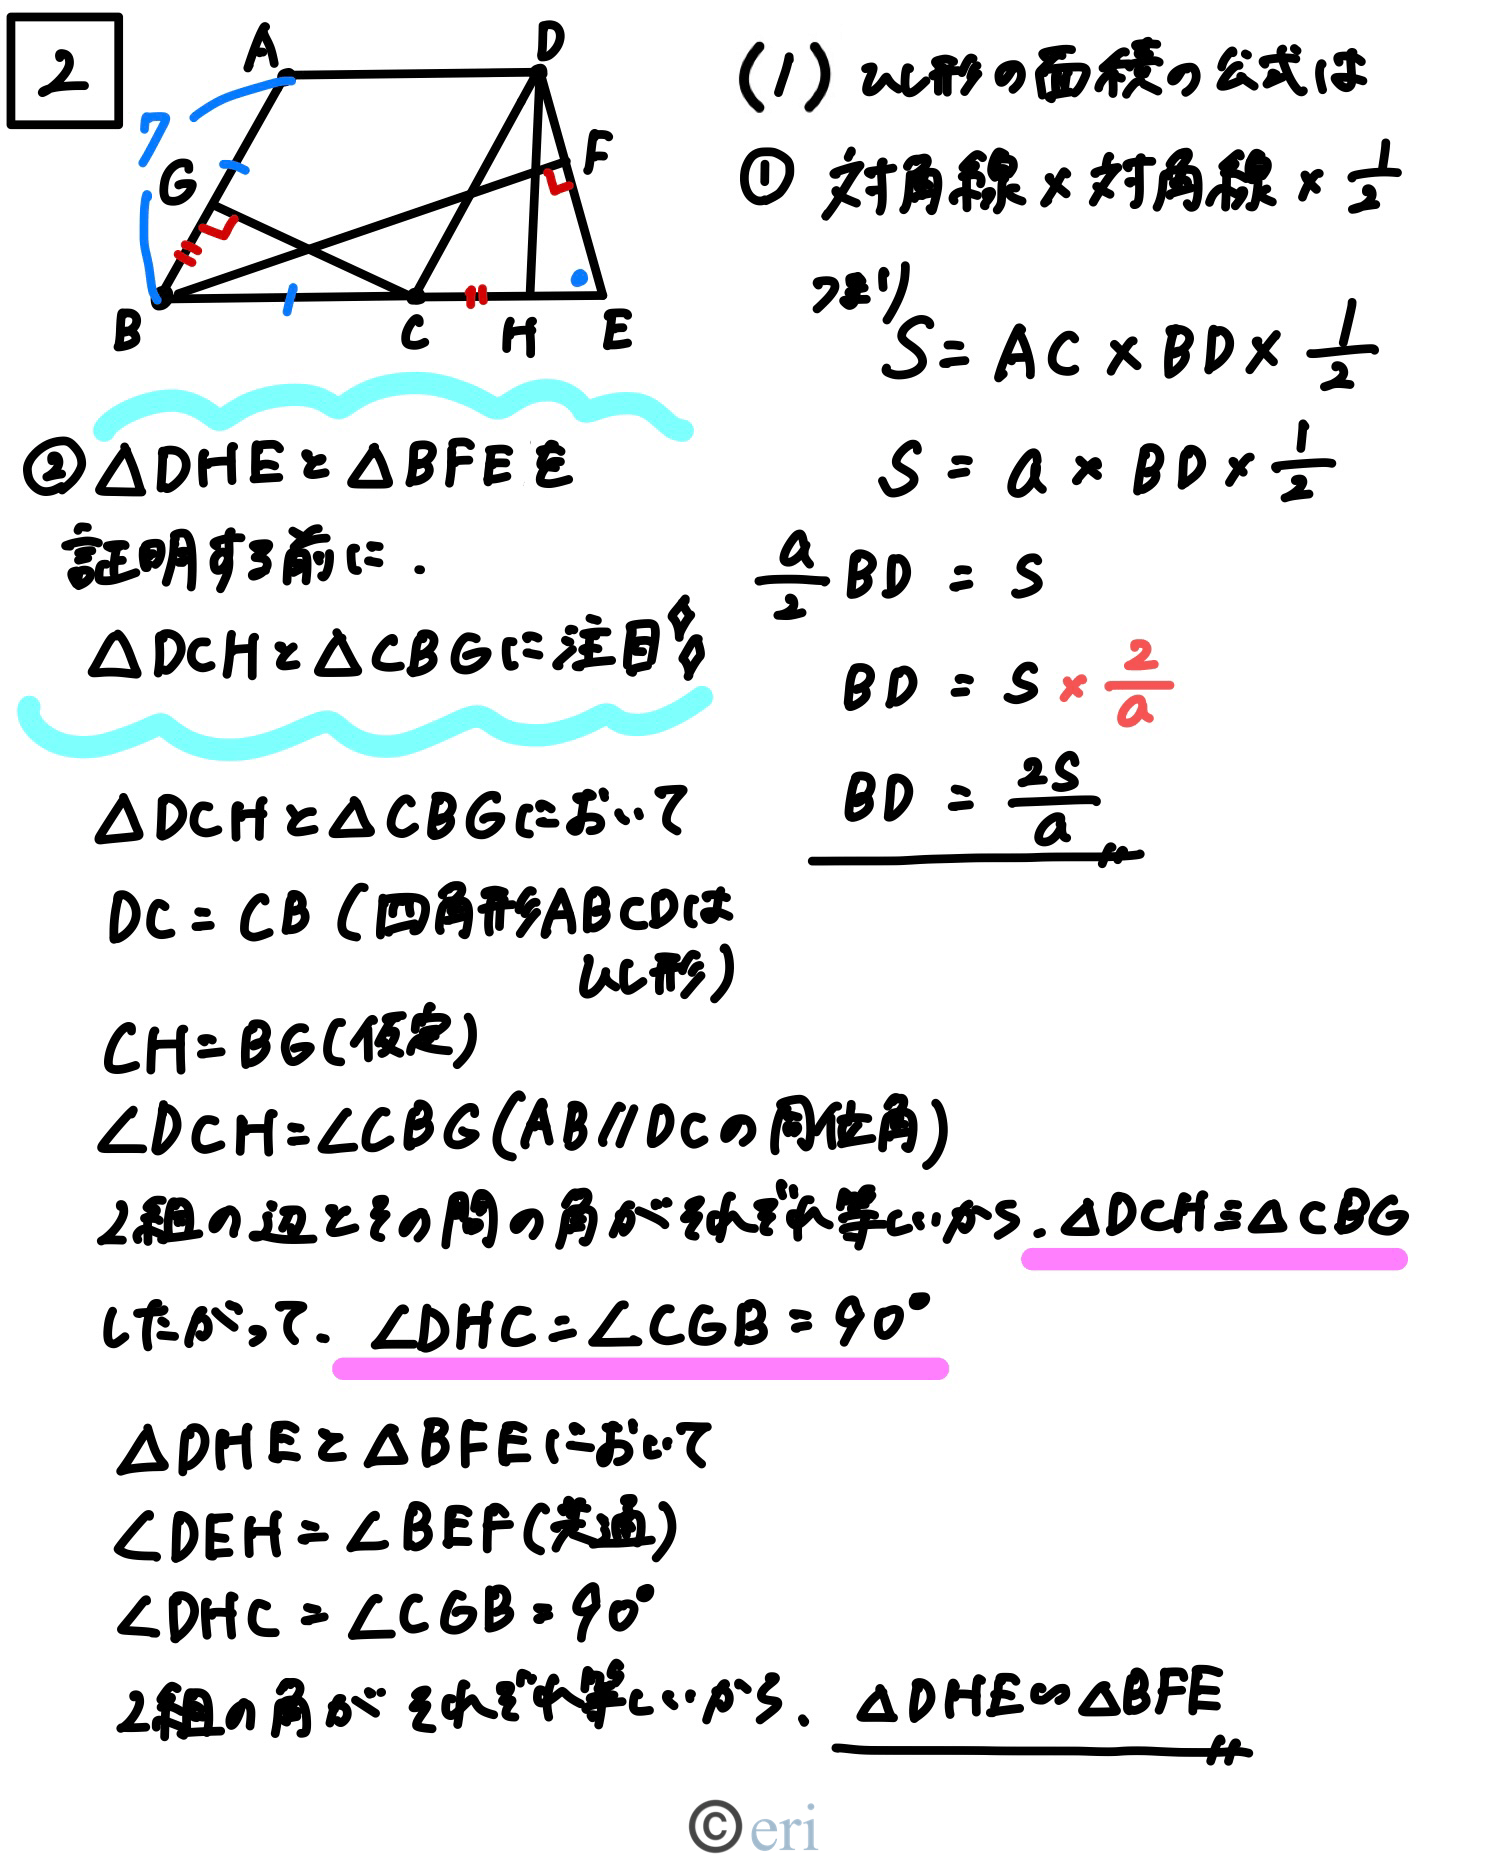 2
A
D
7
G
F
B
C
H
E
(1) ひし形の面積の公式は
① 対角線×対角線×1/2
つまり
S=AC×BD×1/2
S=a×BD×1/2
a/2 BD=S
BD=S×2/a
BD=2S/a
②△DHEと△BFEを
証明する前に.
△DCHと△CBGに注目
△DCHと△CBGにおいて
DC=CB(四角形ABCDは
ひし形)
CH=BG(仮定)
∠DCH=∠CBG(AB//DCの同位角)
2組の辺とその間の角がそれぞれ等しいから.△DCH≡△CBG
したがって.∠DHC=∠CGB=90°
△DHEと△BFEにおいて
∠DEH=∠BEF(共通)
∠DHC=∠CGB=90°
2組の角がそれぞれ等しいから、△DHE∽△BFE
©eri